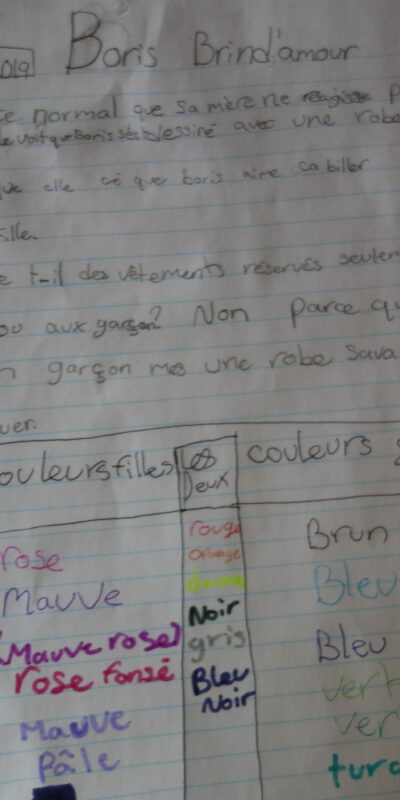 019 Boris Brind'amour
ce normal que sa mère ne réagisse p
le voit que Boris sés dessiné avec une robe
que elle cé que boris aime ça biller
ille.
e t-il des vêtements réservés seulem
ou aux garçon? Non parce qu
n garçon mes une robe sava
uer.
ouleurs filles Les Deux couleurs g
rose rouge Brun
Mauve orange Bleu
(Mauve rose) Jaune Bleu
rose fonsé Noir vert
Mauve gris ver
Pâle Bleu Noir turq